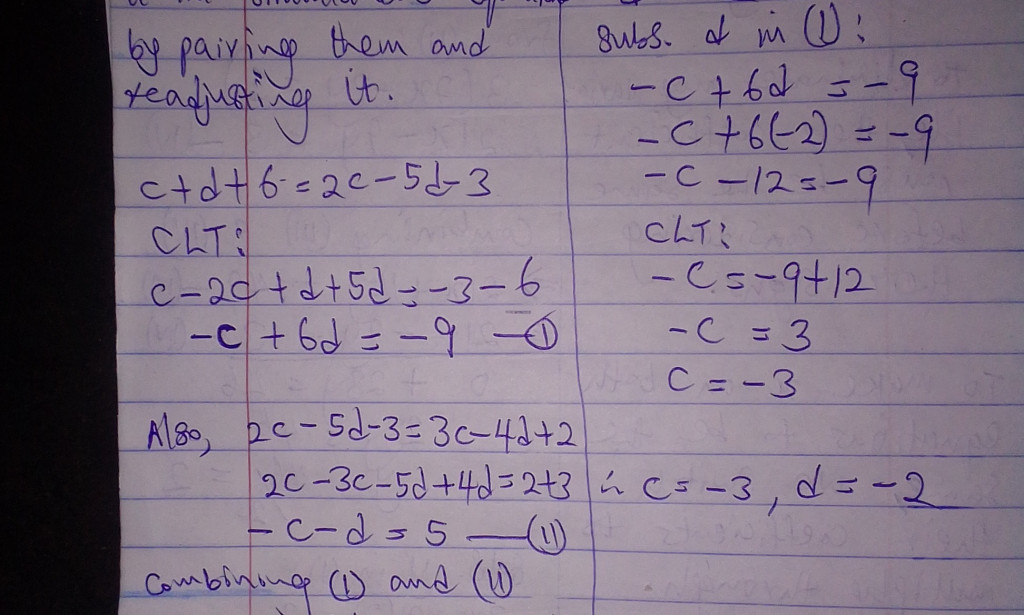 by pairing them and
readjusting it.
c+d+6=2c-5d-3
CLT:
c-2c+d+5d=-3-6
-c+6d=-9 —(I)
Also, 2c-5d-3=3c-4d+2
2c-3c-5d+4d=2+3
-c-d=5 —(II)
Combining (I) and (II)
subs. d in (I):
-c+6d=-9
-c+6(-2)=-9
-c-12=-9
CLT:
-c=-9+12
-c=3
c=-3
∴ c=-3, d=-2